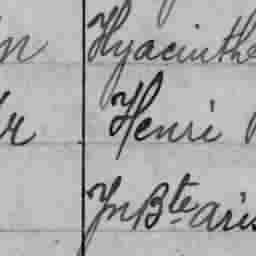 Hyacinthe
Henri
Jn Bte aris